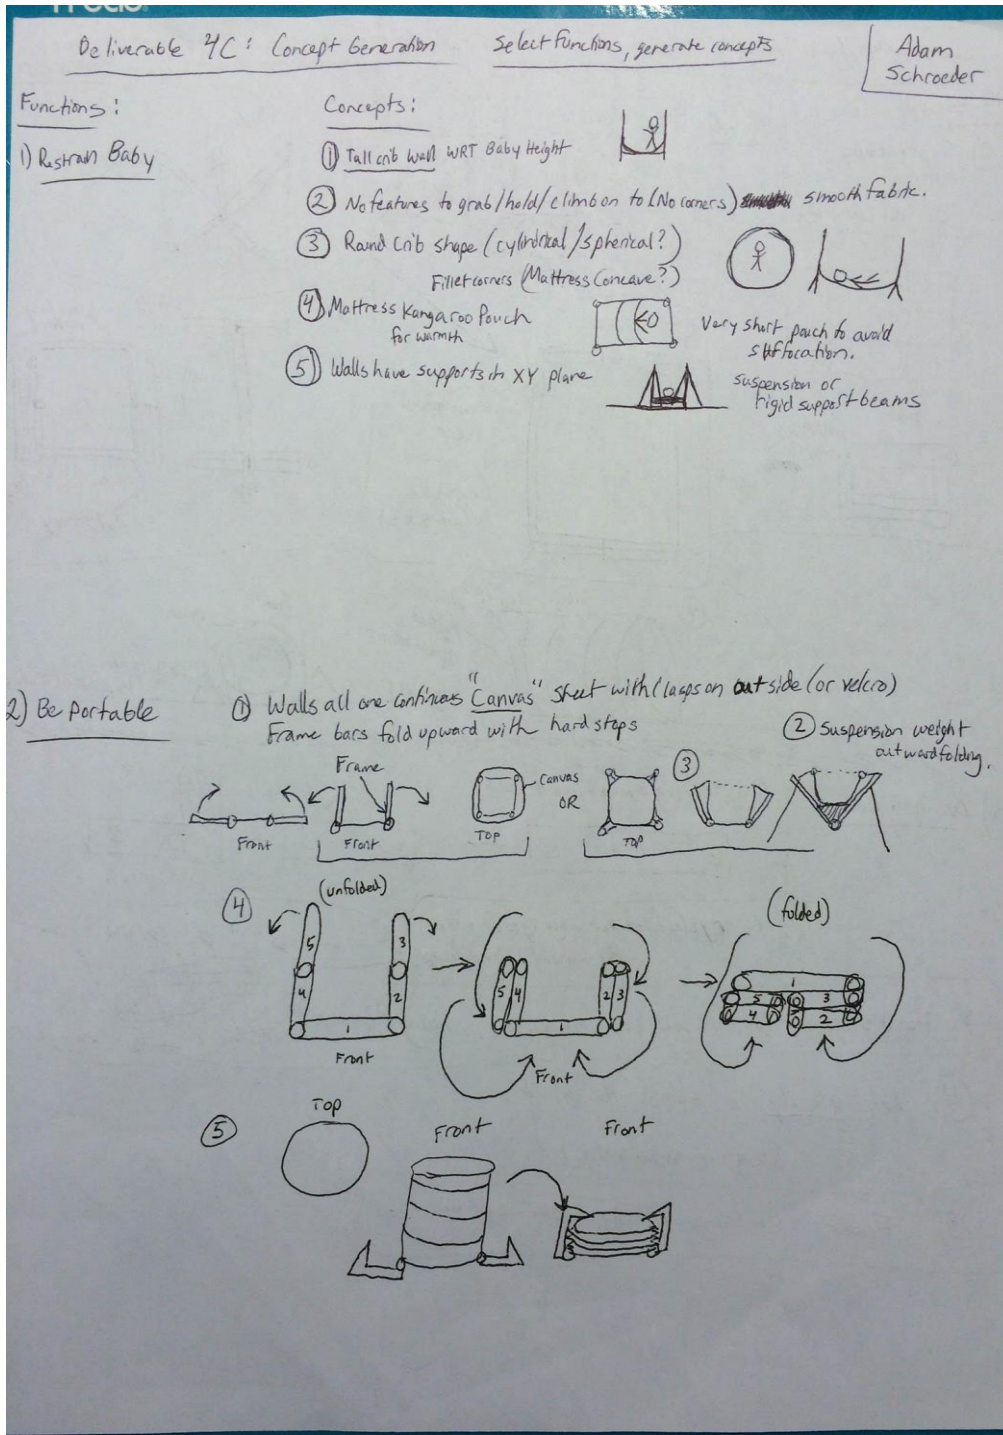 Deliverable 4C: Concept Generation Select functions, generate concepts
Adam
Schroeder
Functions:
Concepts:
1) Restrain Baby
① Tall crib wall WRT Baby Height
② No features to grab/hold/climb on to (No corners) smooth fabric.
③ Round Crib shape (cylindrical/spherical?)
Fillet corners (Mattress Concave?)
④ Mattress Kangaroo Pouch
for warmth
Very short pouch to avoid
suffocation.
⑤ Walls have supports in XY plane
suspension or
rigid support beams
2) Be Portable
① Walls all one continous "Canvas" sheet with clasps on outside (or velcro)
Frame bars fold upward with hard stops
② Suspension weight
outward folding.
Frame
③
Canvas
OR
Front
Front
Top
Top
④
(unfolded)
(folded)
5
3
4
2
1
Front
5
4
2
3
1
Front
1
5
3
4
2
⑤
Top
Front
Front